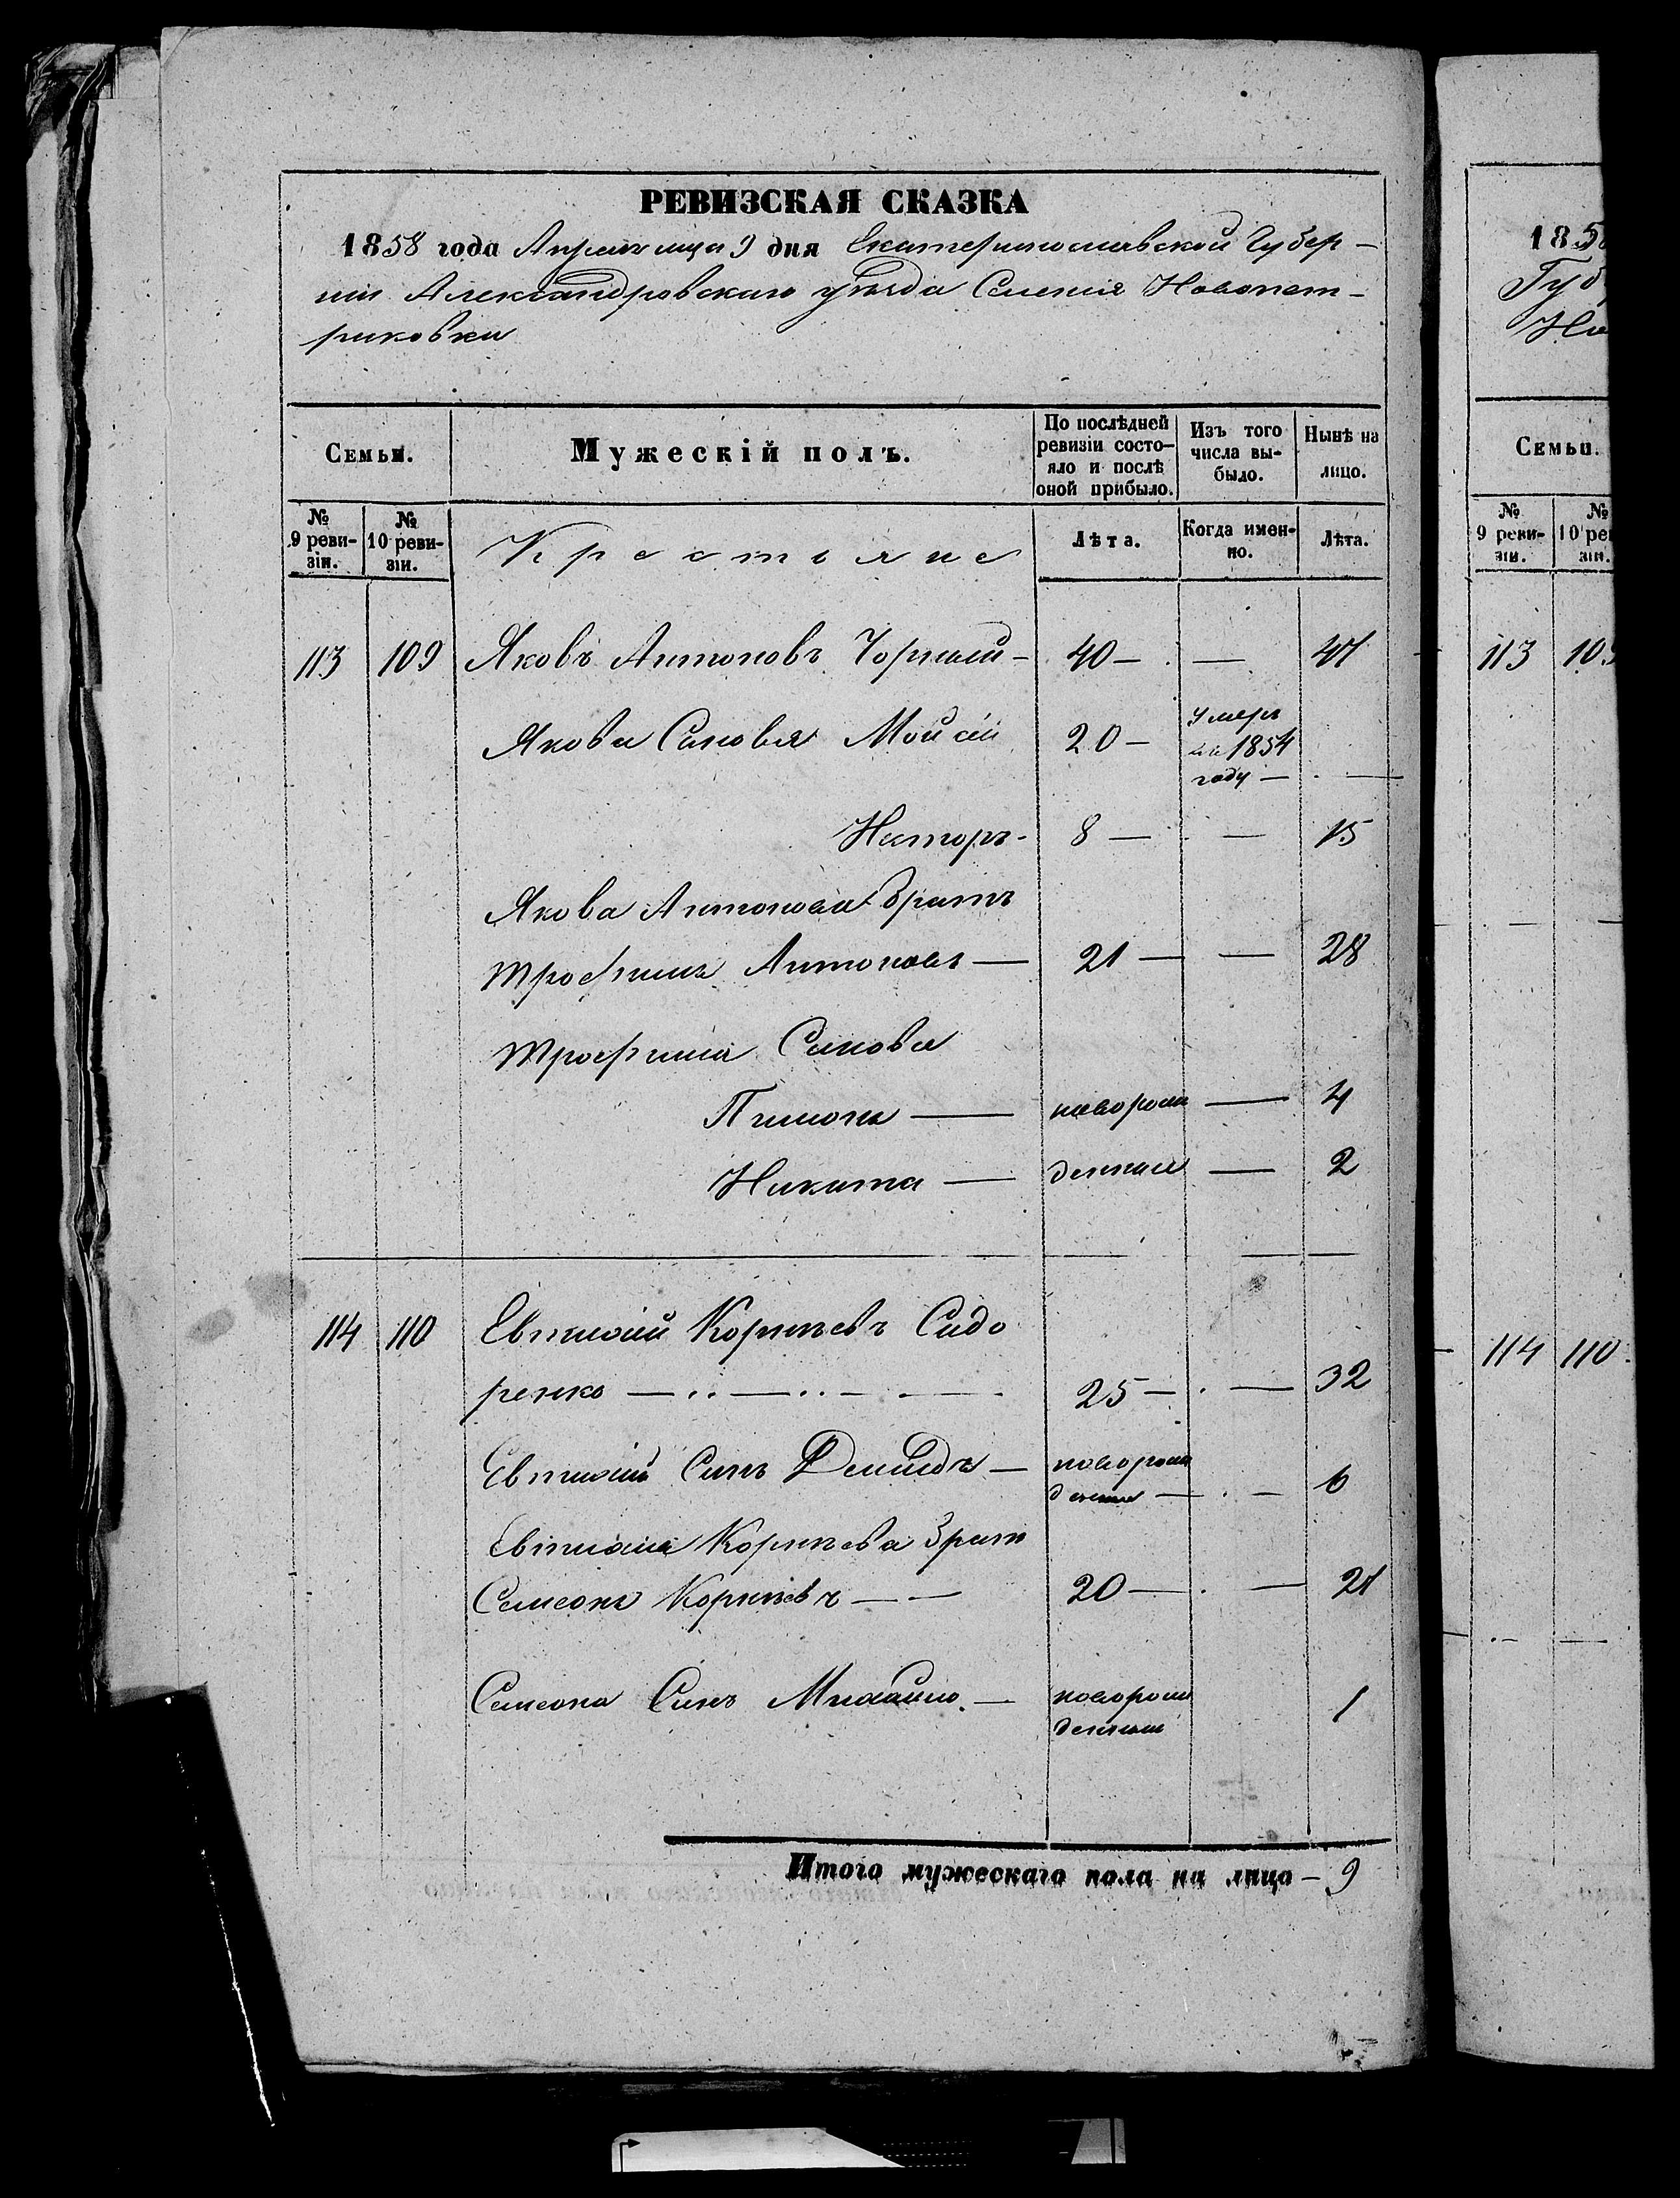 РЕВИЗСКАЯ СКАЗКА
1858 года Апреля мца 9 дня Екатеринославской Губер-
нии Александровскаго уѣзда Селения Новопет-
риковки
Семьи.
Мужескій полъ.
По послѣдней ревизіи состо-
яло и послѣ оной прибыло.
Изъ того числа вы-
было.
Нынѣ на лицо.
№ 9 реви-
зіи.
№ 10 реви-
зіи.
Крестьяне
Лѣта.
Когда имен-
но.
Лѣта.
113 109 Яковъ Антоновъ 40 — — 47
Якова Сыновья Мойсей 20 — Умеръ 1854 году —
Несторъ - 8 — — 15
Якова Антонова Братъ
Трофимъ Антоновъ — 21 — — 28
Трофима Сыновья
Пимонъ — новорож — 4
Никита — денные — 2
114 110 Евтихий Корнѣевъ Сидо
ренко — 25 — — 32
Сынъ Демидъ — новорож
денный — — 6
Корнѣева Братъ
Семеонъ Корнѣевъ — — 20 — — 27
Семеона Сынъ Михайло — новорож
денный 1
Итого мужескаго пола на лицо — 9
1858
Губ
Но
Семьи.
№ 9 реви-
зіи.
№ 10 ре
зіи.
113 10
114 110